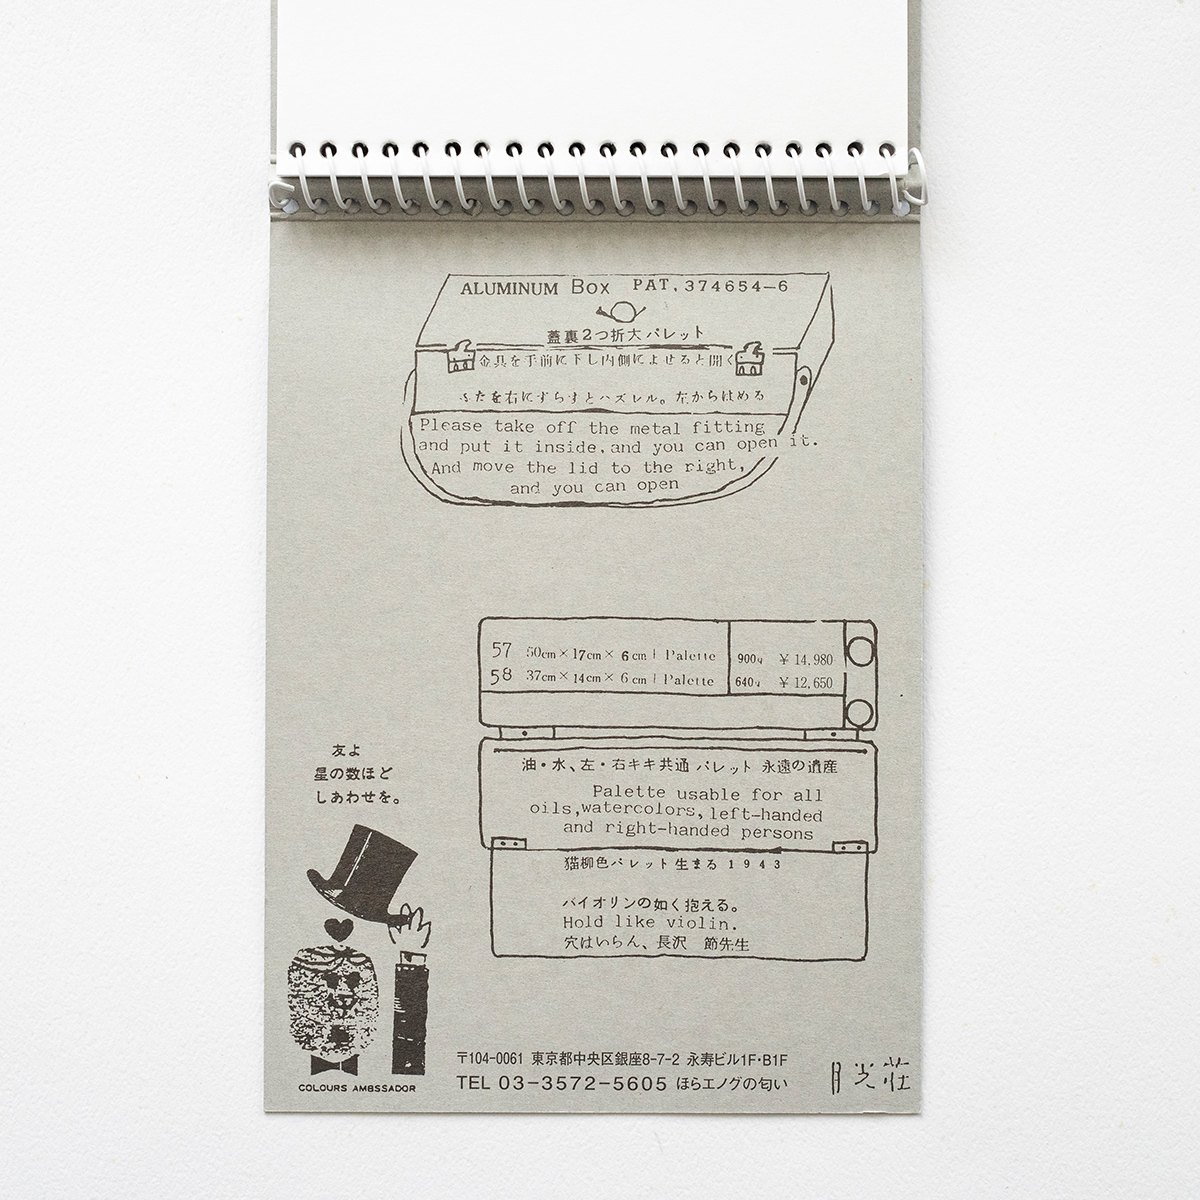 ALUMINUM Box PAT, 374654-6
蓋裏2つ折大パレット
金具を手前に下し内側によせると開く
ふたを右にずらすとハズレル。だからはめる
Please take off the metal fitting
and put it inside, and you can open it.
And move the lid to the right,
and you can open
57 50cm×17cm×6cm Palette 900g ¥14,980
58 37cm×14cm×6cm Palette 640g ¥12,650
油・水、左・右キキ共通 パレット 永遠の遺産
Palette usable for all
oils, watercolors, left-handed
and right-handed persons
猫柳色パレット生まる 1943
バイオリンの如く抱える。
Hold like violin.
穴はいらん、長沢 節先生
友よ
星の数ほど
しあわせを。
COLOURS AMBSSADOR
〒104-0061 東京都中央区銀座8-7-2 永寿ビル1F・B1F
TEL 03-3572-5605 ほらエノグの匂い
月光荘